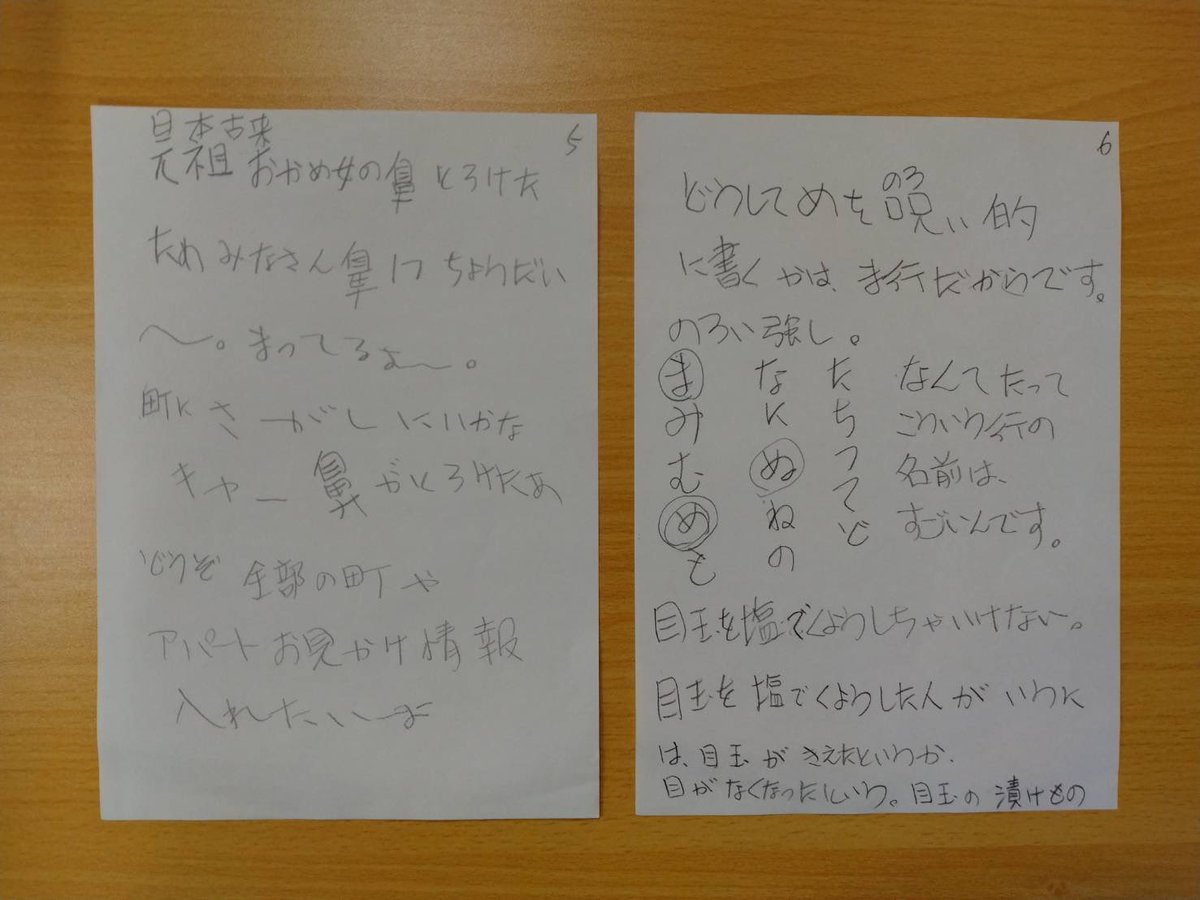 5
日本古来
元祖 おかめ女の鼻とろけた
ため みなさん鼻につちょうだい
〜。まってるよ〜。
町に さがしにいかな
キャー 鼻がとろけたあ
どうぞ 全部の町や
アパートお見かけ情報
入れたいーよ
6
のろ
どうしてめを呪い的
に書くかは、ま行だからです。
のろい強し。
ま な た なんてたって
み に ち こういう行の
む ぬ つ 名前は、
め ね て すごいんです。
も の と
目玉を塩でくようしちゃいけない。
目玉を塩でくようした人がいうに
は、目玉がきえたというか、
目がなくなったという。目玉の漬けもの